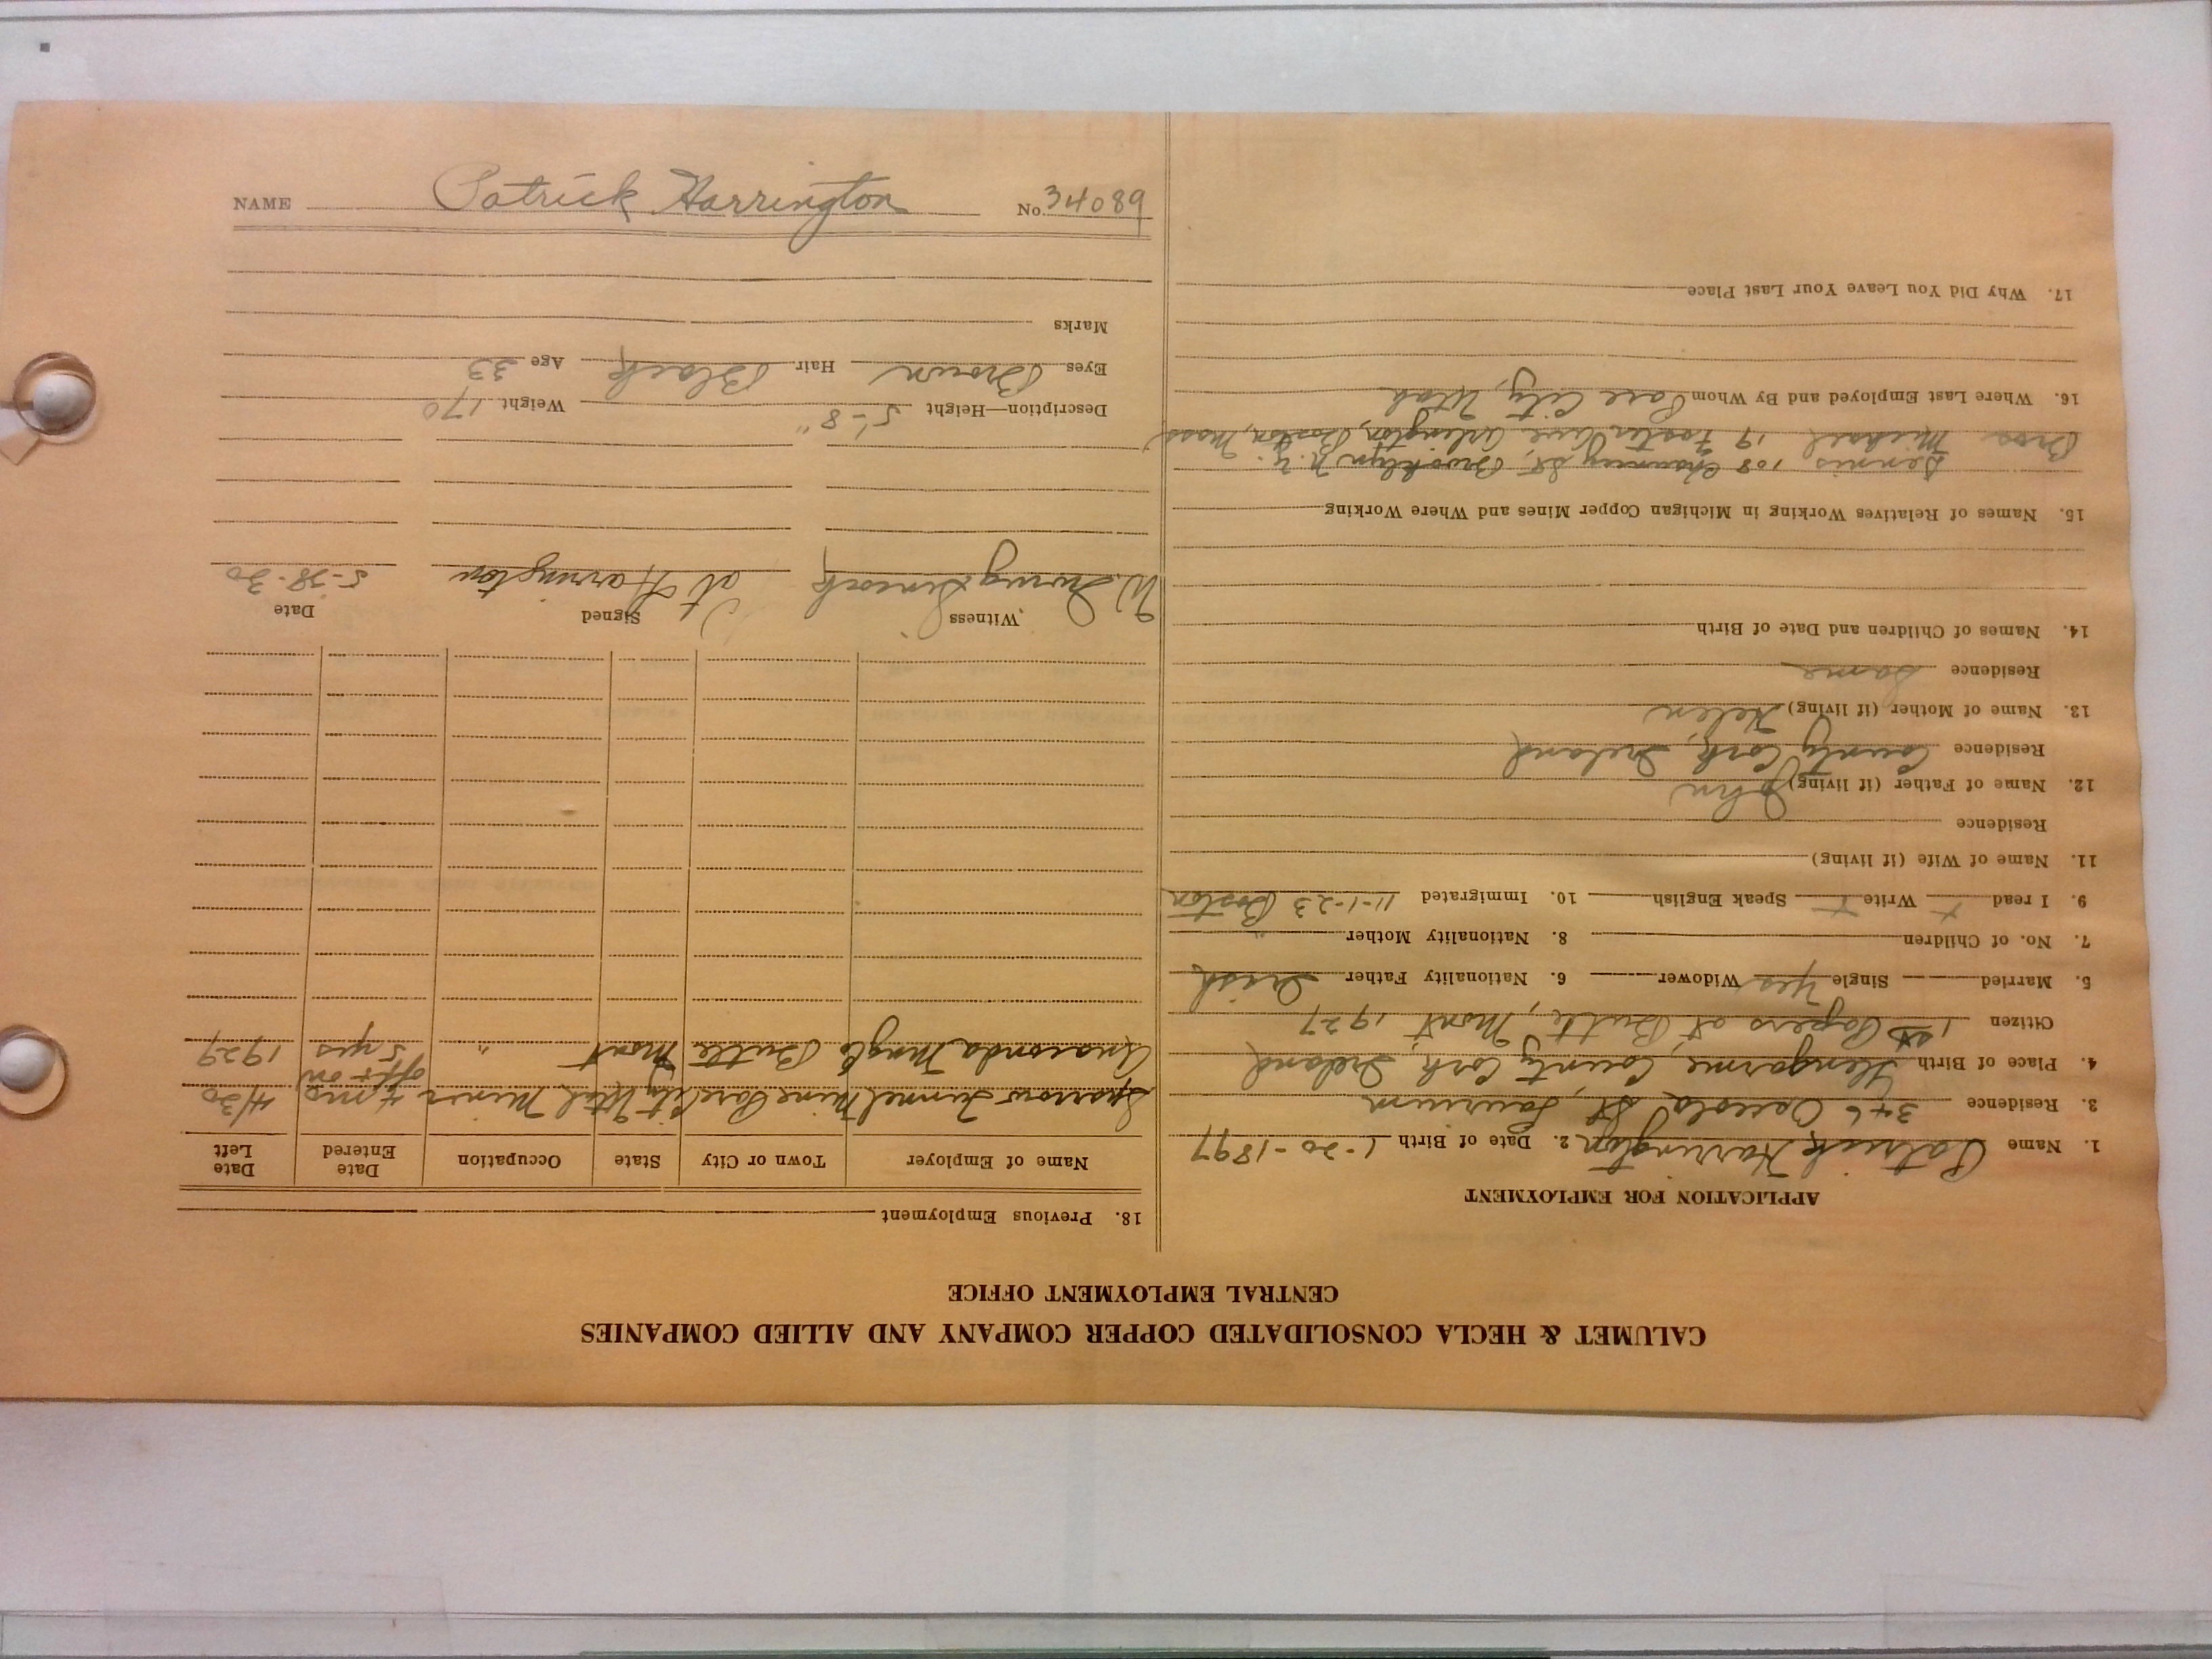 NAME Patrick Harrington No. 34089
CALUMET & HECLA CONSOLIDATED COPPER COMPANY AND ALLIED COMPANIES
CENTRAL EMPLOYMENT OFFICE
APPLICATION FOR EMPLOYMENT
1. Name Patrick Harrington 2. Date of Birth 1-20-1897
3. Residence 346 Osceola St, Laurium
4. Place of Birth County Cork Ireland
Citizen 1st Papers at Butte, Mont 1927
5. Married Single Yes Widower 6. Nationality Father Irish
7. No. of Children 8. Nationality Mother "
9. I read + Write + Speak English 10. Immigrated 11-1-23 Boston
11. Name of Wife (if living)
Residence
12. Name of Father (if living) John
Residence County Cork, Ireland
13. Name of Mother (if living) Helen
Residence Same
14. Names of Children and Date of Birth
15. Names of Relatives Working in Michigan Copper Mines and Where Working
Dennis 108 Chauncey St, Brooklyn N.Y.
Bros Michael 19 Foster Ave Arlington, Boston, Mass
16. Where Last Employed and By Whom Parc City, Utah
17. Why Did You Leave Your Last Place
18. Previous Employment
Name of Employer Town or City State Occupation Date Entered Date Left
Sparrow Tunnel Mine Parc City Utah Miner 4 mo 4/30
Anaconda Butte Mont " off + on 5 yrs 1929
Witness Signed Date
W. Irving at Harrington 5-28-30
Description—Height 5'-8" Weight 170
Eyes Brown Hair Black Age 33
Marks